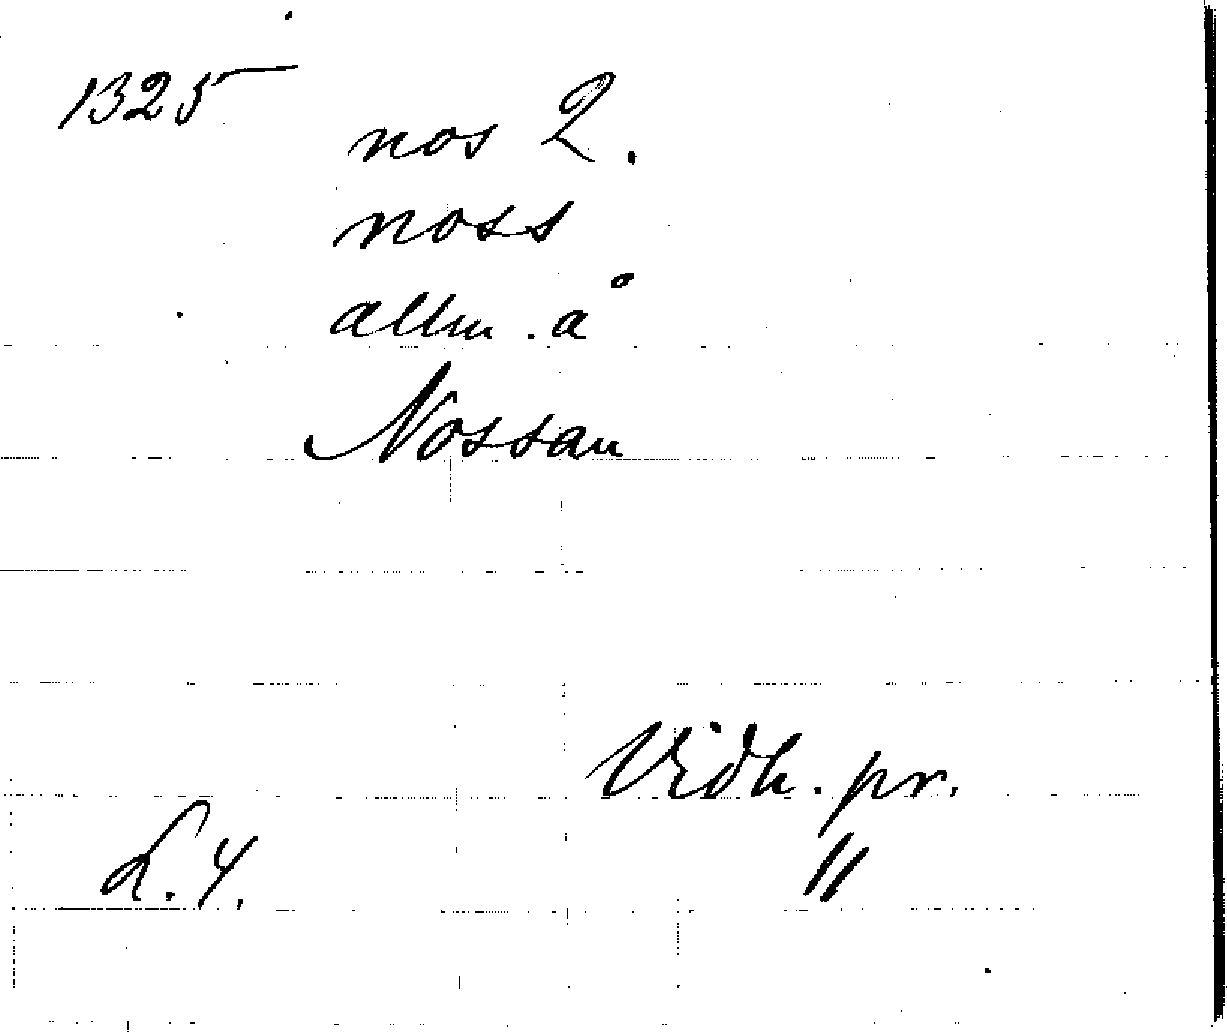 1325
nos 2.
noss
allm. å
Nossan
Vidh. pr.
L. 4.
"